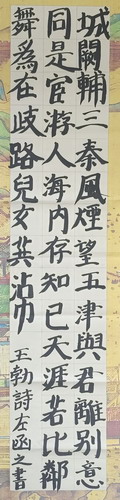 城闕輔三秦風煙望五津與君離別意
同是宦游人海內存知己天涯若比鄰
舞為在歧路兒女共沾巾
王勃詩左函之書